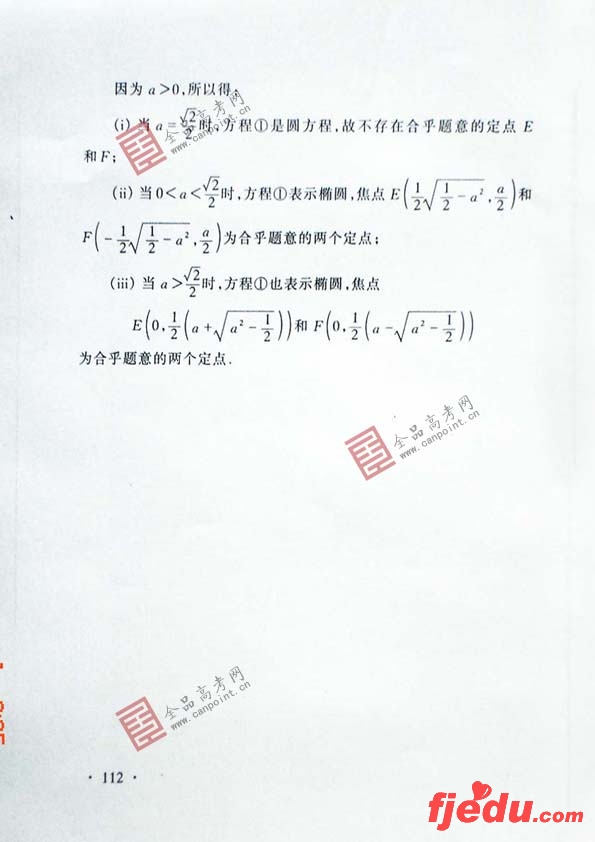 因为 a>0,所以得:
(i) 当 a = √2/2 时,方程①是圆方程,故不存在合乎题意的定点 E
和 F;
(ii) 当 0<a<√2/2 时,方程①表示椭圆,焦点 E(1/2 √(1/2 - a²), a/2)和
F(-1/2 √(1/2 - a²), a/2)为合乎题意的两个定点;
(iii) 当 a>√2/2 时,方程①也表示椭圆,焦点
E(0, 1/2(a+√(a² - 1/2)))和 F(0, 1/2(a-√(a² - 1/2)))
为合乎题意的两个定点.
全品高考网
www.canpoint.cn
全品高考网
www.canpoint.cn
全品高考网
www.canpoint.cn
· 112 ·
fjedu.com